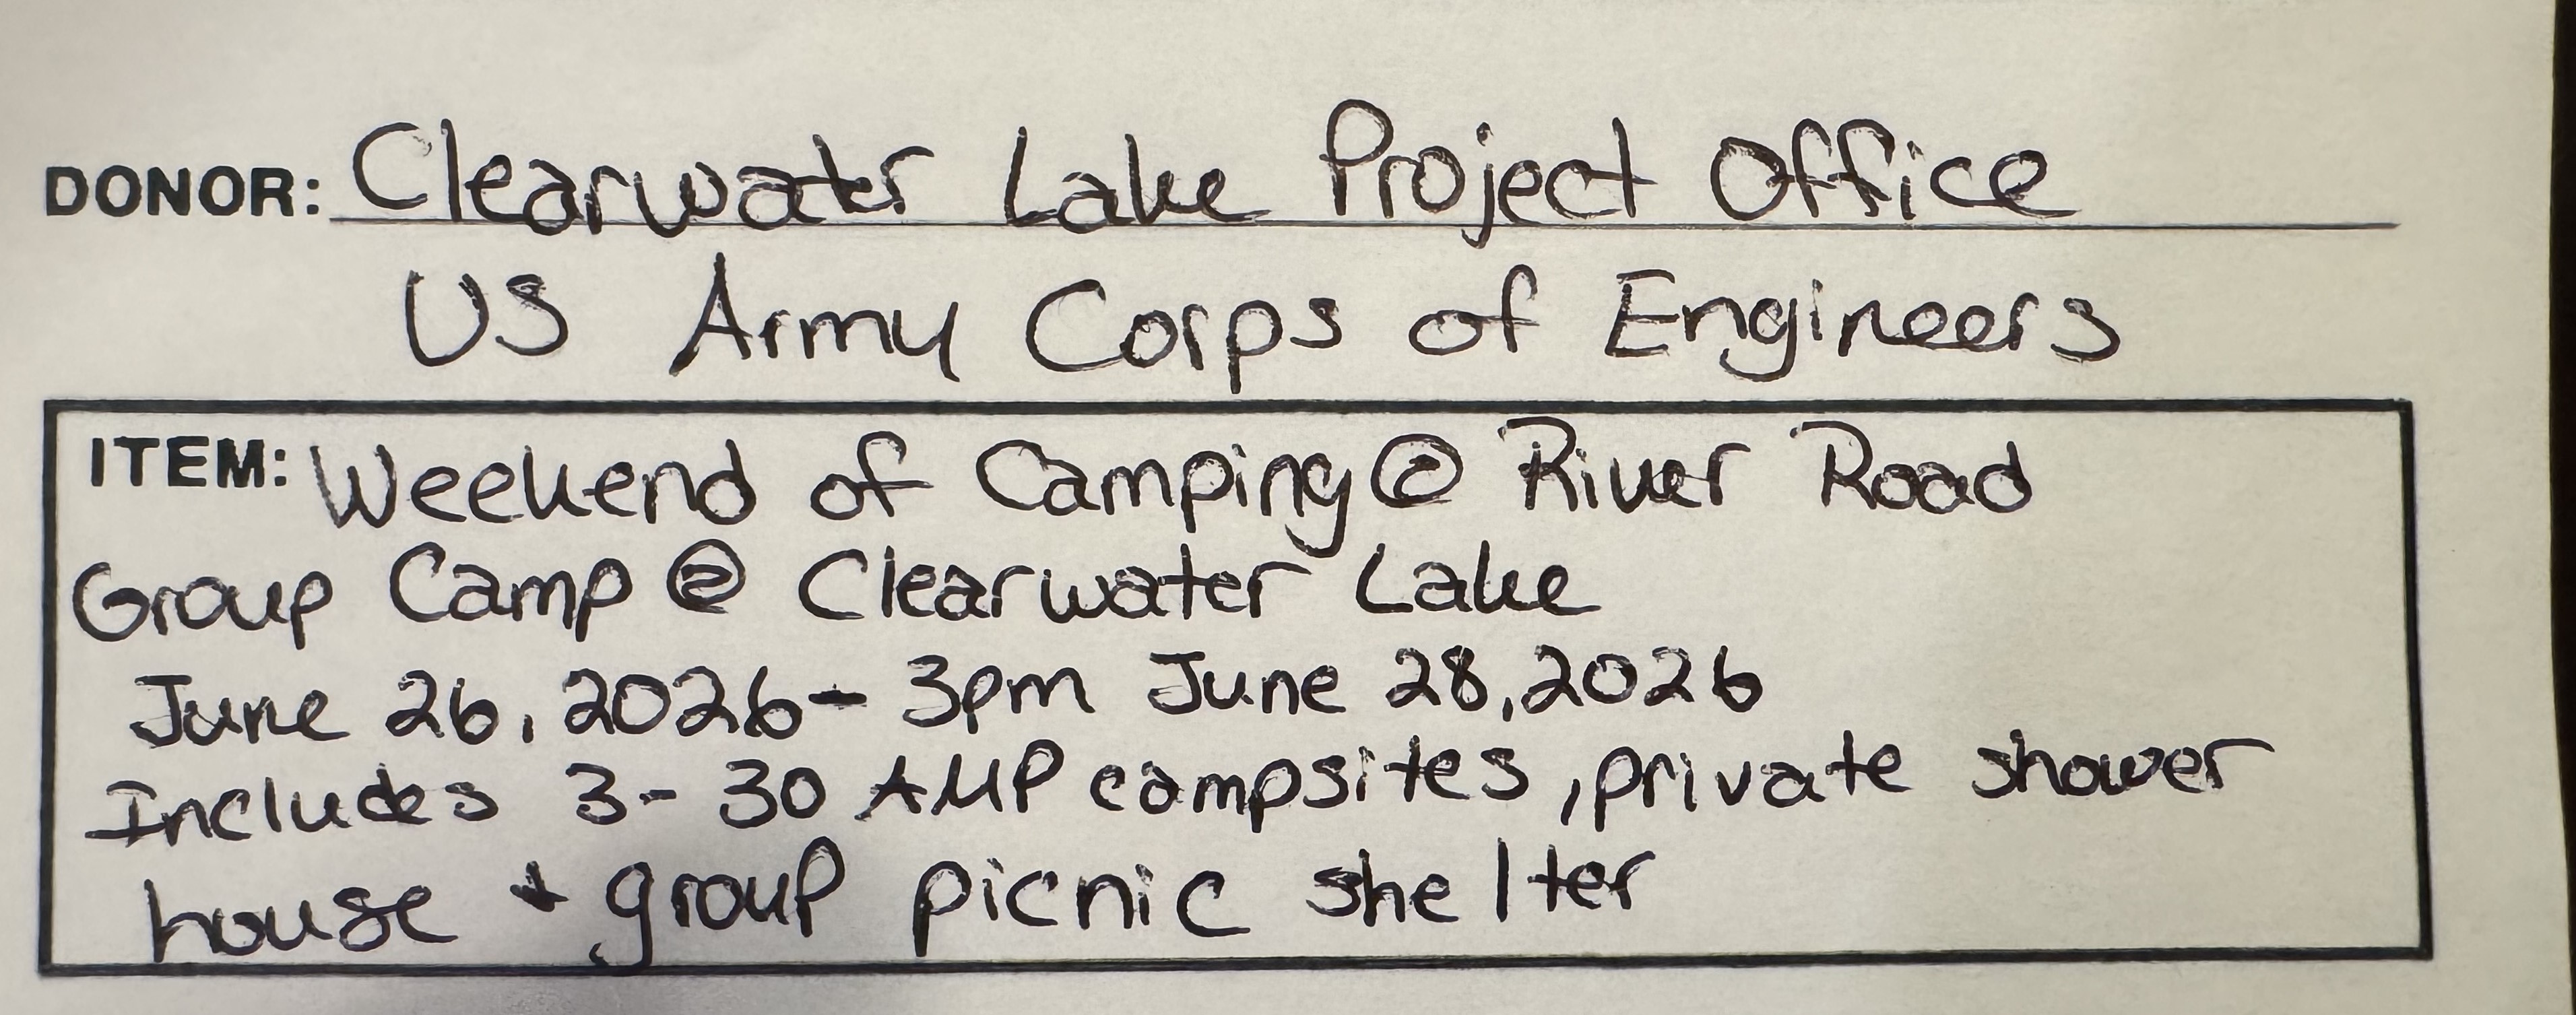 DONOR: Clearwater Lake Project Office
US Army Corps of Engineers
ITEM: Weekend of Camping @ River Road
Group Camp @ Clearwater Lake
June 26, 2026 - 3pm June 28, 2026
Includes 3- 30 AMP campsites, private shower
house + group picnic shelter